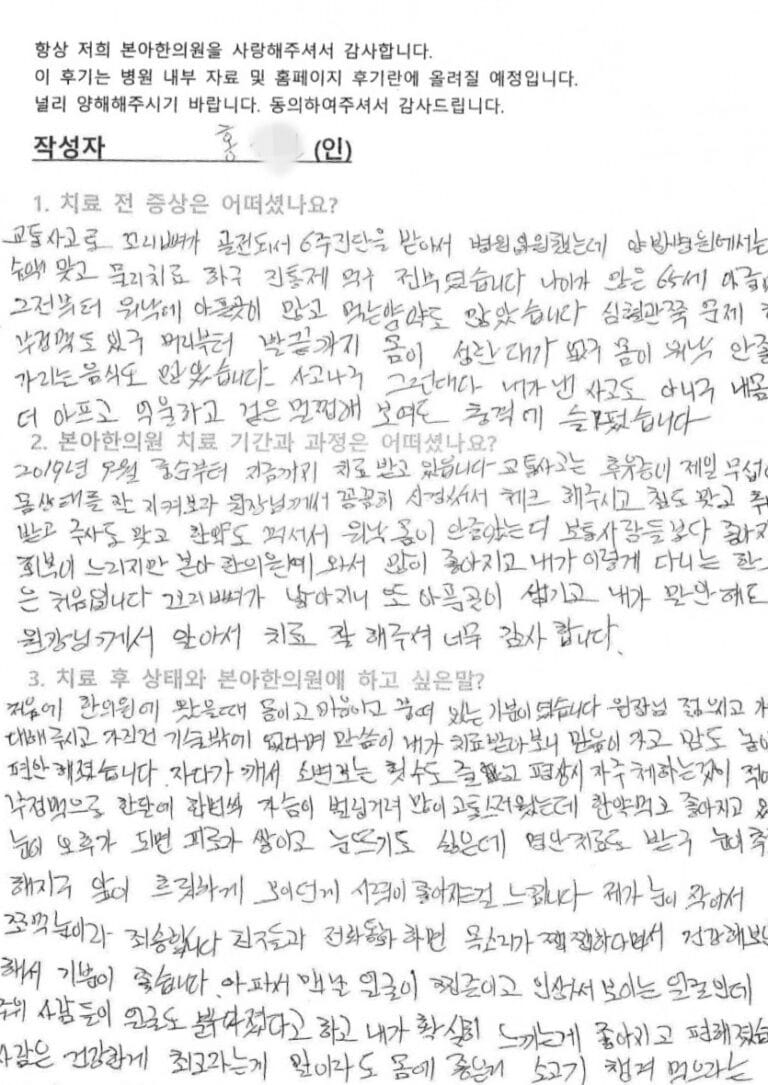 항상 저희 본아한의원을 사랑해주셔서 감사합니다.
이 후기는 병원 내부 자료 및 홈페이지 후기란에 올려질 예정입니다.
널리 양해해주시기 바랍니다. 동의하여주셔서 감사드립니다.
작성자 홍 (인)
1. 치료 전 증상은 어떠셨나요?
교통사고로 꼬리뼈가 골절되서 6주진단을 받아서 병원입원했는데 양방병원에서는
수액 맞고 물리치료 하구 진통제 먹구 전부였습니다 나이가 많은 65세
그전부터 워낙에 아픈곳이 많고 먹는양약도 많았습니다 심혈관쪽 문제
부정맥도 있구 머리부터 발끝까지 몸이 성한데가 없구 몸이 워낙
가리는음식도 많았습니다 사고나구 그런데다 내가 낸 사고도 아니구
더 아프고 억울하고 겉은 멀쩡해 보여도 충격에 슬펐습니다
2. 본아한의원 치료 기간과 과정은 어떠셨나요?
2019년 9월 중순부터 지금까지 치료 받고 있습니다 교통사고는 후유증이 제일
몸상태를 잘 지켜보고 원장님께서 꼼꼼히 신경써서 체크 해주시고 침도 맞고
받고 주사도 맞고 한약도 먹어서 워낙 몸이 보통사람들보다
회복이 느리지만 본아한의원에 와서 많이 좋아지고 내가 이렇게 다니는
은 처음입니다 꼬리뼈가 낳아지니 또 아픈곳이 생기고 내가 말안해도
원장님께서 알아서 치료 잘 해주셔 너무 감사합니다.
3. 치료 후 상태와 본아한의원에 하고 싶은말?
처음에 한의원에 왔을때 몸이고 마음이고 있는 기분이였습니다 원장님 젊으시고
대해주시고 가진건 기술밖에 없다며 말씀이 내가 치료받아보니 믿음이 가고 맘도
편안해졌습니다. 자다가 깨서 소변보는 횟수도 줄고 평상시 자주 체하는것이
부정맥으로 한달에 한번씩 가슴이 벌렁거려 많이 고통스러웠는데 한약먹고 좋아지고
눈이 오후가 되면 피로가 쌓이고 눈뜨기도 싫은데 치료도 받구 눈이
해지구 앞이 흐릿하게 보이던게 시력이 좋아졌걸 느낍니다 제가 눈이 작아서
쪼막눈이라 죄송합니다 친구들과 전화통화하면 목소리가 쨍쨍하다면서
해서 기분이 좋습니다. 아파서 맨날 얼굴이 찡그리고 인상써 보이는 얼굴인데
주위 사람들이 얼굴도 밝아졌다고 하고 내가 확실히 느끼는게 좋아지고
사람은 건강한게 최고라는게 말이라도 몸에 좋은거 소고기 챙겨 먹으라는